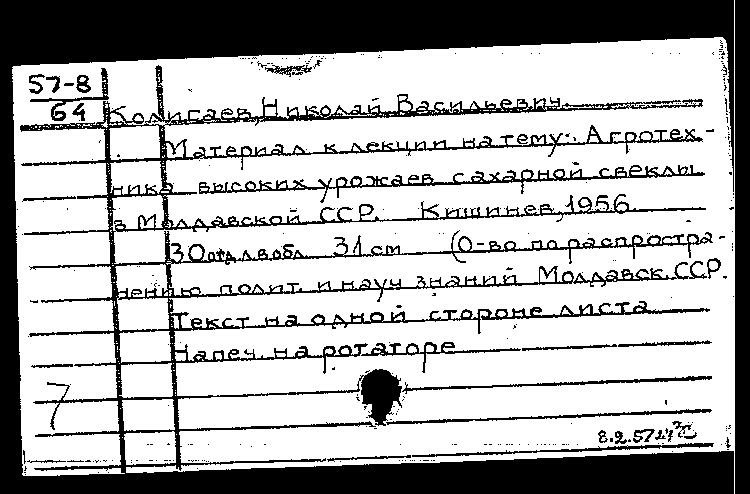 57-8
64
Колисаев, Николай Васильевич.
Материал к лекции на тему: Агротех-
ника высоких урожаев сахарной свеклы
в Молдавской ССР. Кишинев, 1956.
30 отд.л. в обл. 31 см (О-во по распростра-
нению полит. и науч знаний Молдавск. ССР.
Текст на одной стороне листа
Напеч. на ротаторе
7
8.2.57